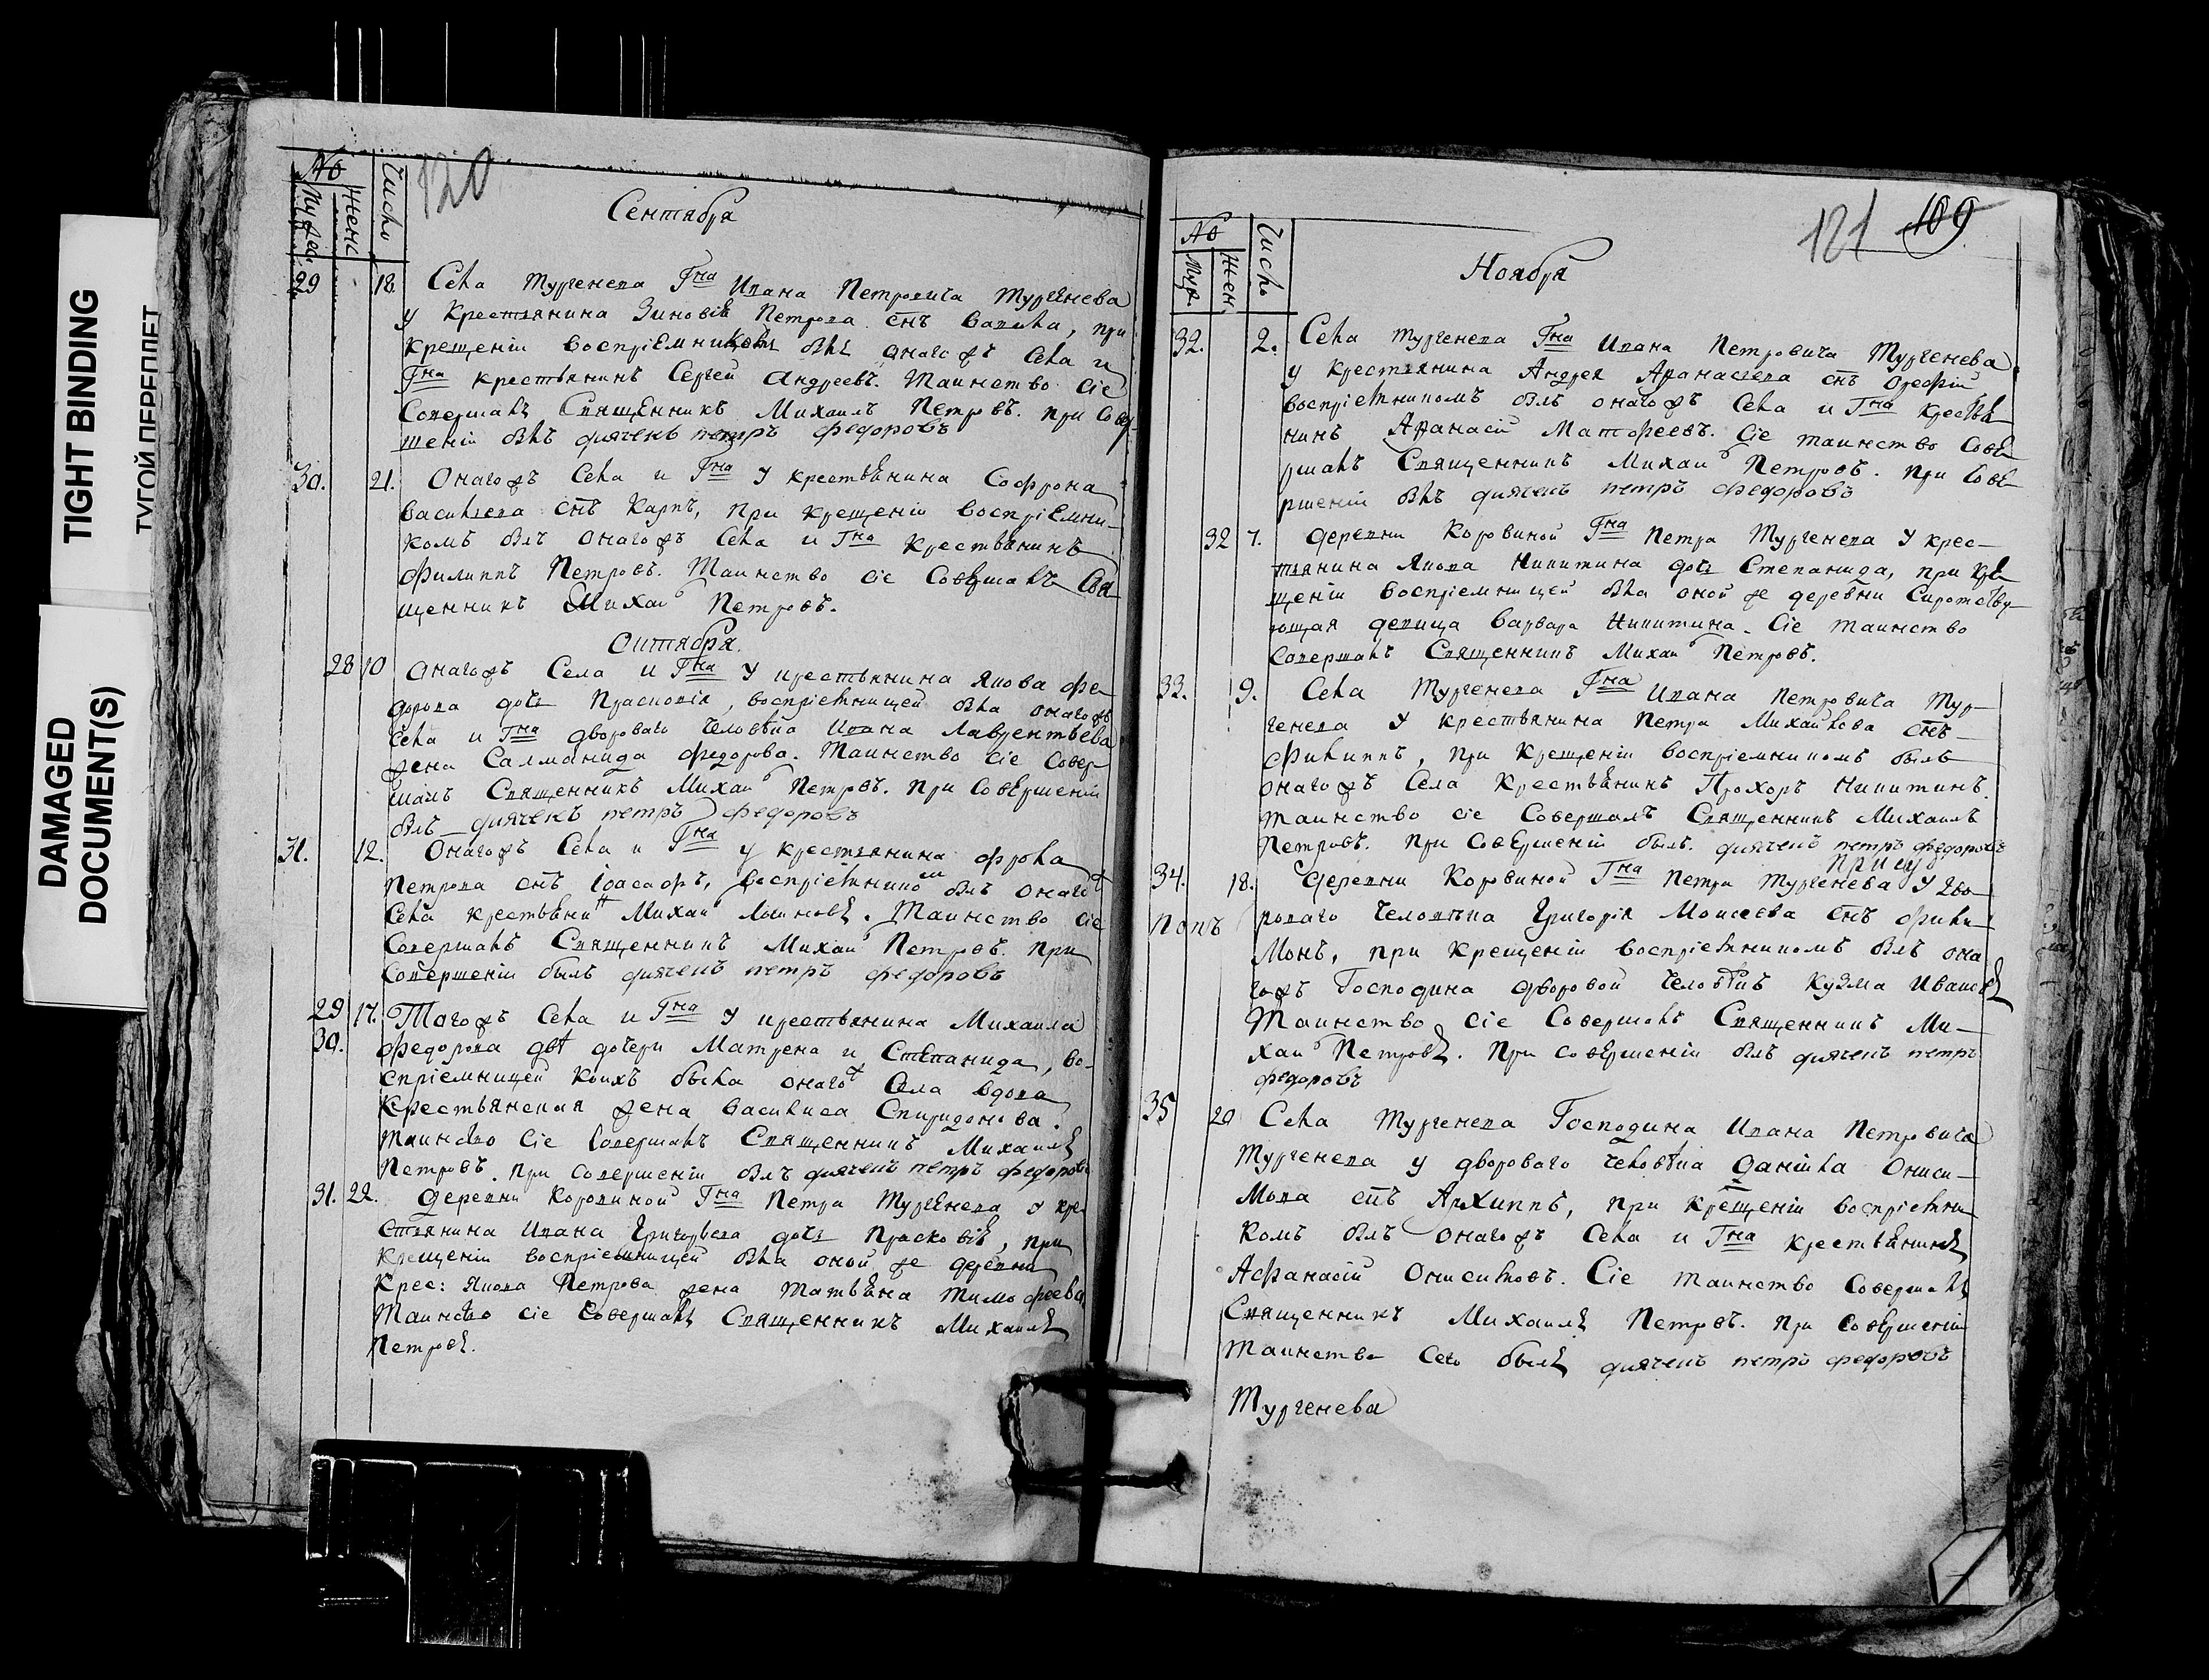 DAMAGED
DOCUMENT(S)
TIGHT BINDING
ТУГОЙ ПЕРЕПЛЕТ
№
Муже
Женс
Число
120
Сентября
29 18. Села Тургенева Гна Ивана Петровича Тургенева
у крестьянина Зиновія Петрова снъ Савелій, при
крещеніи воспріемникомъ былъ онагожъ села и
Гна крестьянинъ Сергей Андреевъ. Таинство сіе
совершалъ Священникъ Михаилъ Петровъ. при совер-
шеніи былъ дьячекъ петръ федоровъ
30. 21. Онагожъ Села и Гна у крестьянина Софрона
Васильева снъ Карпъ, при крещеніи воспріемни-
комъ былъ онагожъ Села и Гна крестьянинъ
Филиппъ Петровъ. Таинство сіе Совершалъ Свя
щенникъ Михаи Петровъ.
Октября.
28 10 Онагожъ Села и Гна у крестьянина Якова Фе
дорова дочь Прасковія, воспріемницей была онагожъ
Села и Гна двороваго человѣка Ивана Лаврентьева
жена Саломонида Федорова. Таинство сіе Совер
шалъ Священникъ Михаи Петровъ. При Совершеніи
былъ дьячекъ петръ федоровъ
31. 12. Онагожъ Села и Гна у крестьянина Фрола
Петрова снъ Іоасафъ, воспріемником былъ онаго
Села крестьянин Михаи Логиновъ. Таинство сіе
Совершалъ Священникъ Михаи Петровъ. при
Совершеніи былъ дьячекъ петръ федоровъ
29 17. Тогожъ Села и Гна у крестьянина Михаила
30. Федорова двѣ дочери Матрена и Степанида, во-
спріемницей коихъ была онаго Села вдова
Крестьянская жена Василиса Спиридонова.
Таинство сіе Совершалъ Священникъ Михаилъ
Петровъ. при Совершеніи былъ дьячекъ петръ федоровъ
31. 22. Деревни Коровиной Гна Петра Тургенева у кре
стьянина Ивана Григорьева дочь Прасковія, при
крещеніи воспріемницей была оной же деревни
Крес: Якова Петрова жена Татьяна Тимофеева.
Таинство сіе Совершалъ Священникъ Михаилъ
Петровъ.
121 109
№
Муж.
Жен
Число
Ноября
32. 2. Села Тургенева Гна Ивана Петровича Тургенева
у крестьянина Андрея Афанасьева снъ
воспріемникомъ былъ онагожъ Села и Гна крестья
нинъ Афанасій Матфеевъ. Сіе таинство Сове
ршалъ Священникъ Михаи Петровъ. При Сове
ршеніи былъ дьячекъ петръ федоровъ
32 7. Деревни Коровиной Гна Петра Тургенева у крес-
тьянина Якова Никитина дочь Степанида, при кре
щеніи воспріемницей была оной же деревни Сиротству
ющая девица Варвара Никитина. Сіе таинство
Совершалъ Священникъ Михаи Петровъ.
33. 9. Села Тургенева Гна Ивана Петровича Тур-
генева у крестьянина Петра Михайлова снъ
Филиппъ, при крещеніи воспріемникомъ былъ
онагожъ Села крестьянинъ Прохоръ Никитинъ.
Таинство сіе Совершалъ Священникъ Михаилъ
Петровъ. при Совершеніи былъ. дьячекъ петръ федоровъ
34. 18. Деревни Коровиной Гна Петра Тургенева у дво
роваго человѣка Григорія Моисеева снъ Фили
монъ, при крещеніи воспріемникомъ былъ она
гожъ Господина дворовой человѣкъ Кузма Ивановъ
Таинство сіе Совершалъ Священникъ Ми-
хаи Петровъ. При совершеніи былъ дьячекъ петръ
федоровъ
35 20 Села Тургенева Господина Ивана Петровича
Тургенева у двороваго человѣка Даніила Ониси-
мова снъ Архиппъ, при крещеніи воспріемни
комъ былъ онагожъ Села и Гна крестьянинъ
Афанасій Онисимовъ. Сіе таинство Совершалъ
Священникъ Михаилъ Петровъ. при Совершеніи
таинства Сего былъ дьячекъ петръ федоровъ
Тургенева